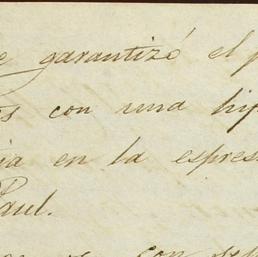 e garantizó el p
os con una hip
ia en la espres
Paul.
con